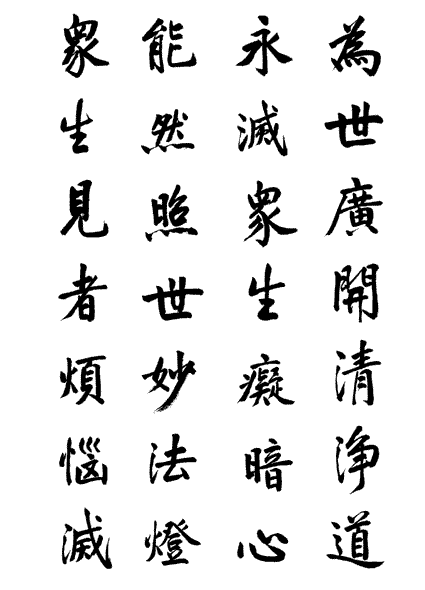 為世廣開清淨道
永滅眾生癡暗心
能然照世妙法燈
眾生見者煩惱滅